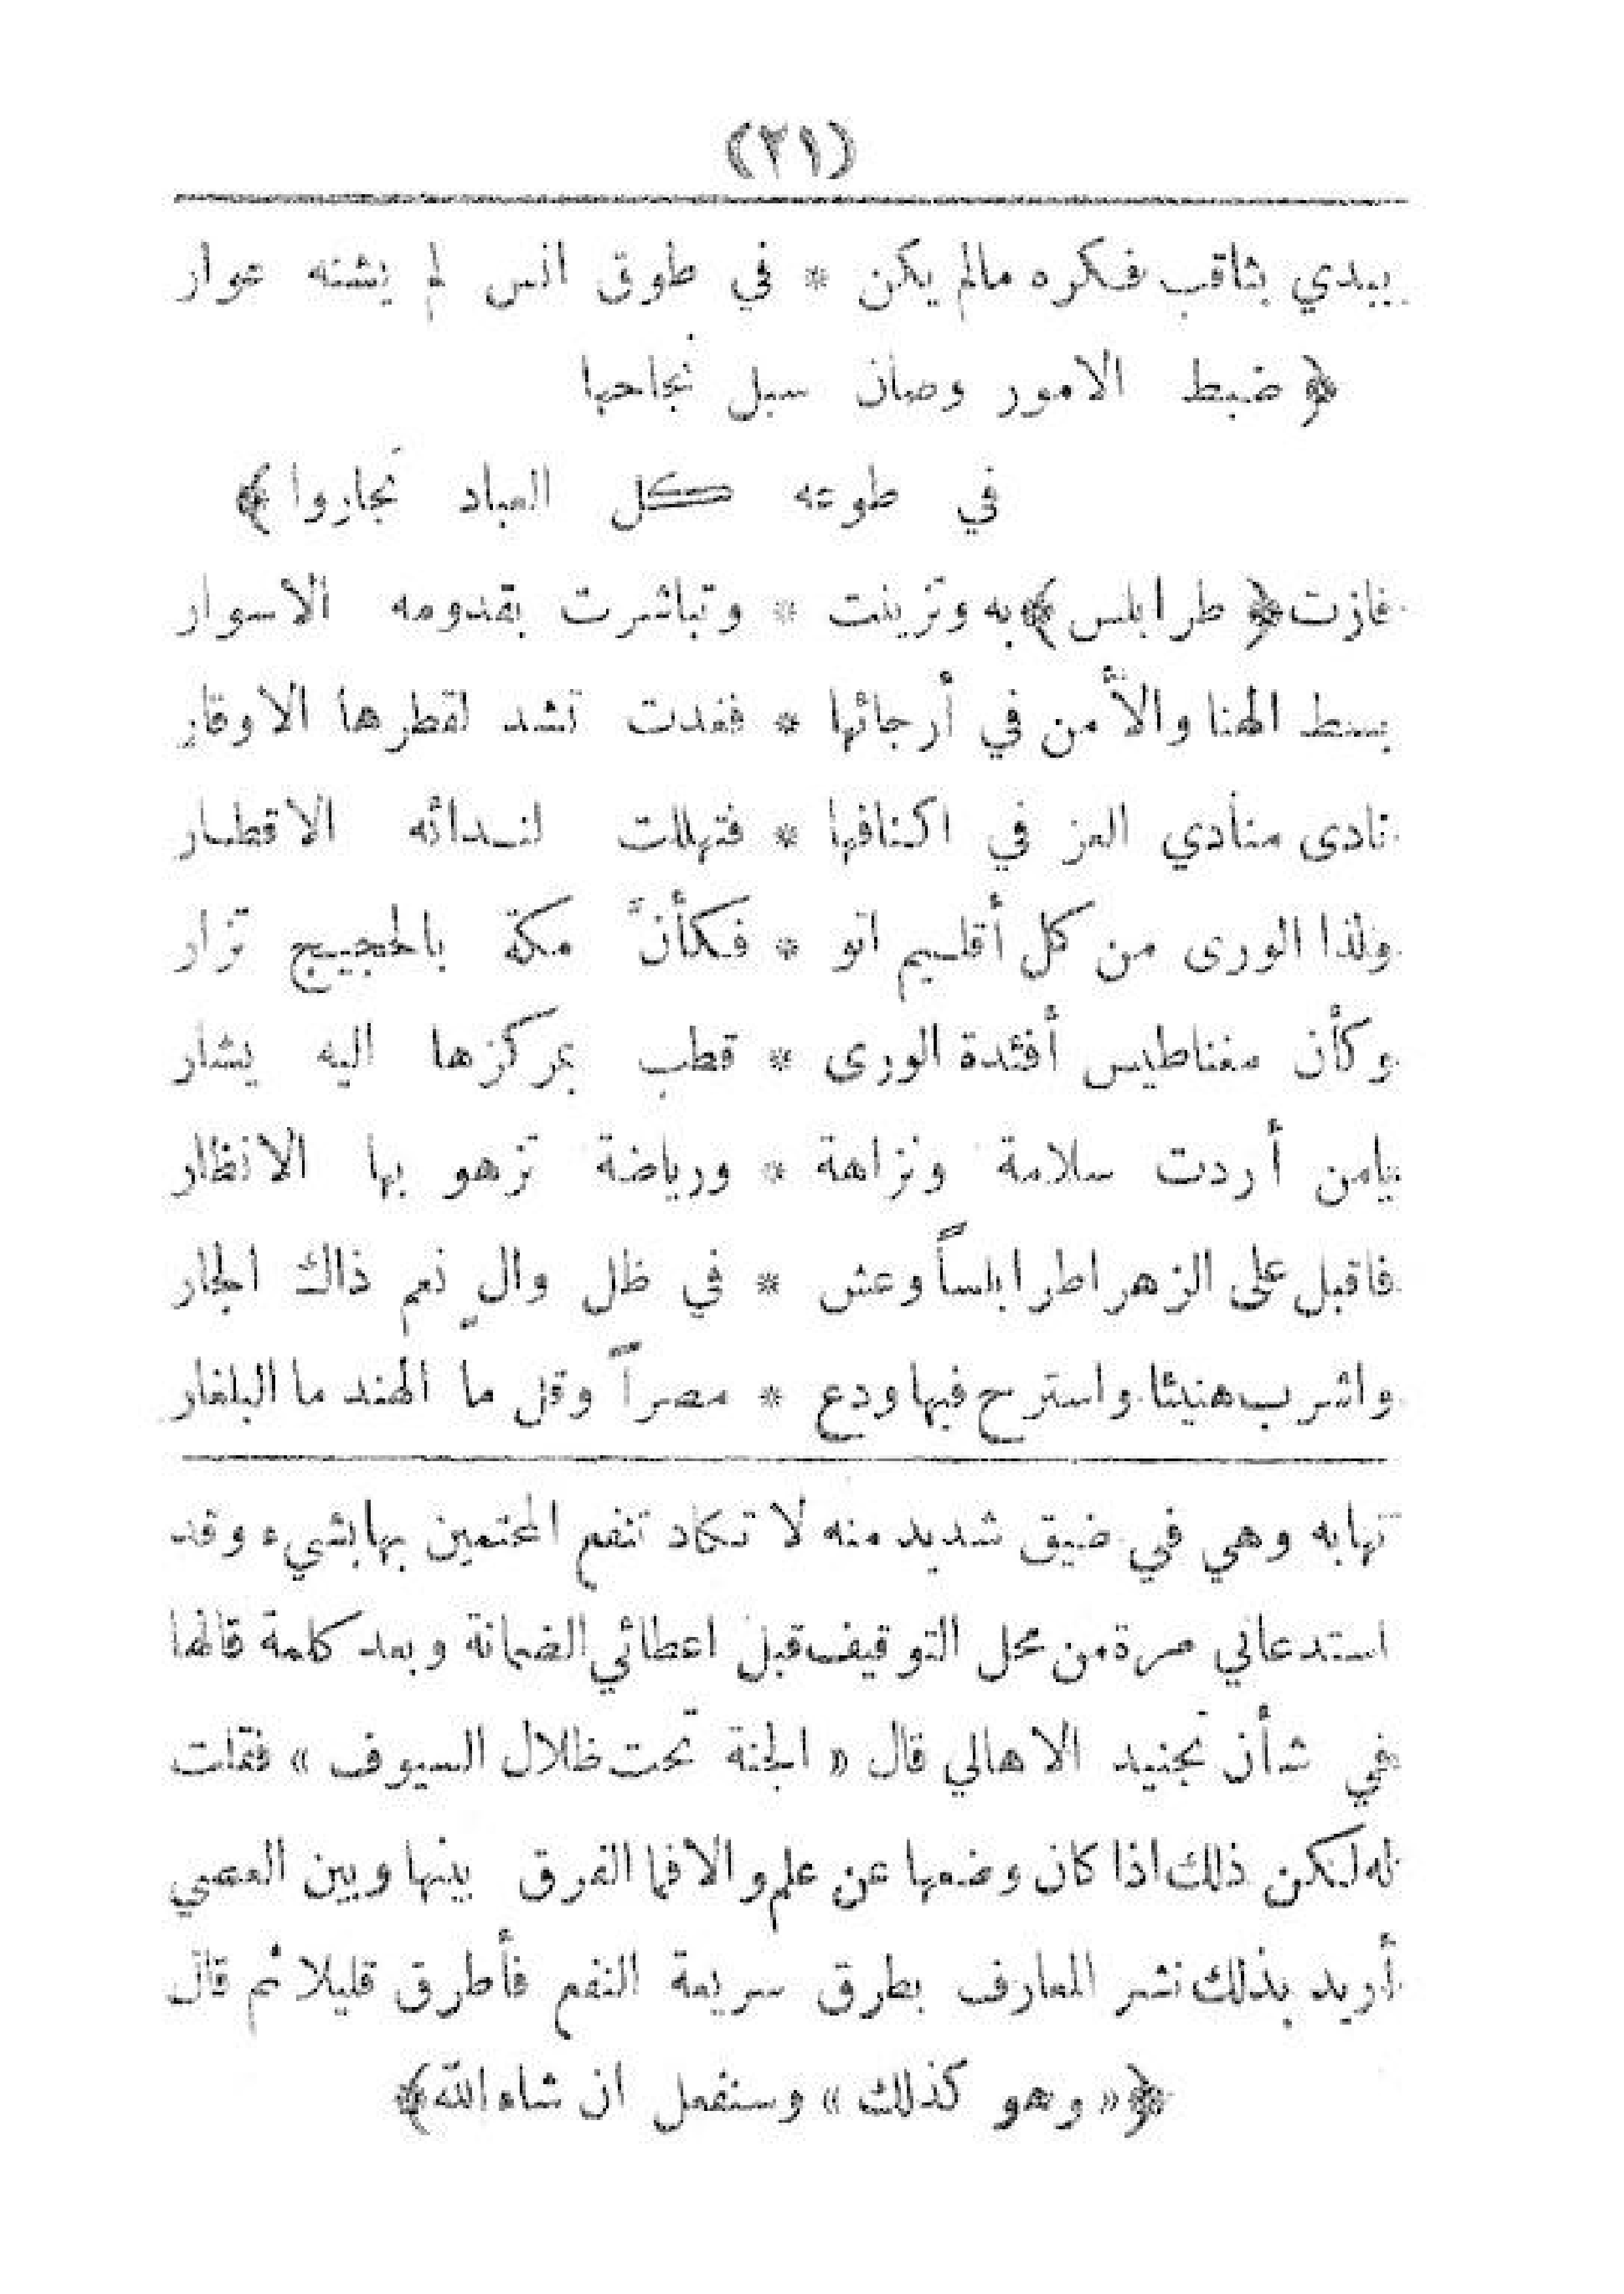 (٢١)
يبدي بثاقب فكره مالم يكن * في طوق انس لم يشنه عوار
﴿ ضبط الامور وصان سبل نجاحها
في طوعه كل العباد تجاروا ﴾
فازت ﴿ طرابلس ﴾ به وتزينت * وتباشرت بقدومه الاسوار
بسط الهنا والأمن في أرجائها * فغدت تشد لقطرها الاوقار
نادى منادي العز في اكنافها * فتهللت لندائه الاقطار
ولذا الورى من كل أقليم اتو * فكأنَّ مكة بالحجيج تزار
وكأن مغناطيس أفئدة الورى * قطب بمركزها اليه يشار
يامن أردت سلامة ونزاهة * ورياضة تزهو بها الانظار
فاقبل على الزهرا طرابلساً وعش * في ظل والٍ نعم ذاك الجار
واشرب هنيئا واسترح فيها ودع * مصراً وقل ما الهند ما البلغار
تهابه وهي في ضيق شديد منه لا تكاد تنفع المحتمين بها بشيء وقد
استدعاني مرة من محل التوقيف قبل اعطائي الضمانة وبعد كلمة قالها
في شأن تجنيد الاهالي قال « الجنة تحت ظلال السيوف » فقلت
له لكن ذلك اذا كان وضعها عن علم والا فما الفرق بينها وبين العصي
أريد بذلك نشر المعارف بطرق سريعة النفع فأطرق قليلا ثم قال
﴿« وهو كذلك » وسنفعل ان شاء الله﴾